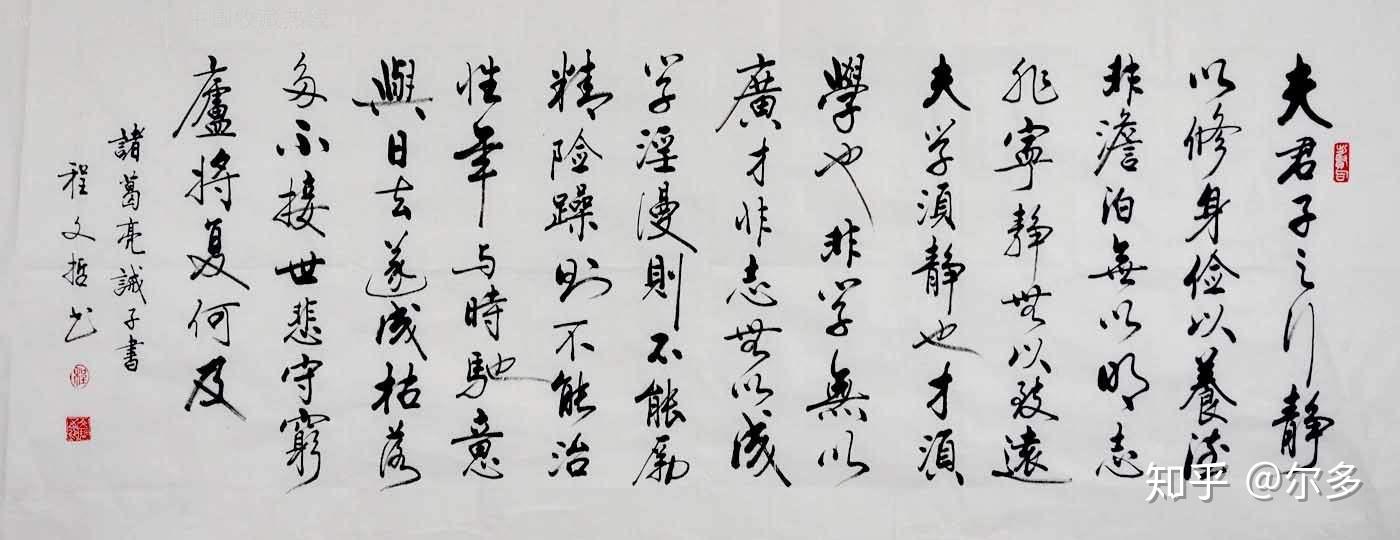 夫君子之行静
以修身俭以養德
非澹泊無以明志
非寧静無以致遠
夫学須静也才須
學也非学無以
廣才非志無以成
学淫漫則不能励
精险躁则不能治
性年与時馳意
與日去遂成枯落
多不接世悲守窮
廬将复何及
諸葛亮誡子書
程文哲书
知乎 @尔多